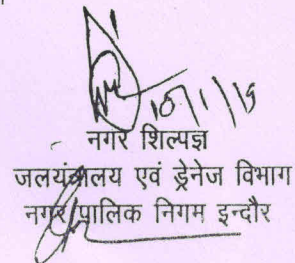 नगर शिल्पज्ञ
जलयंत्रालय एवं ड्रेनेज विभाग
नगर पालिक निगम इन्दौर